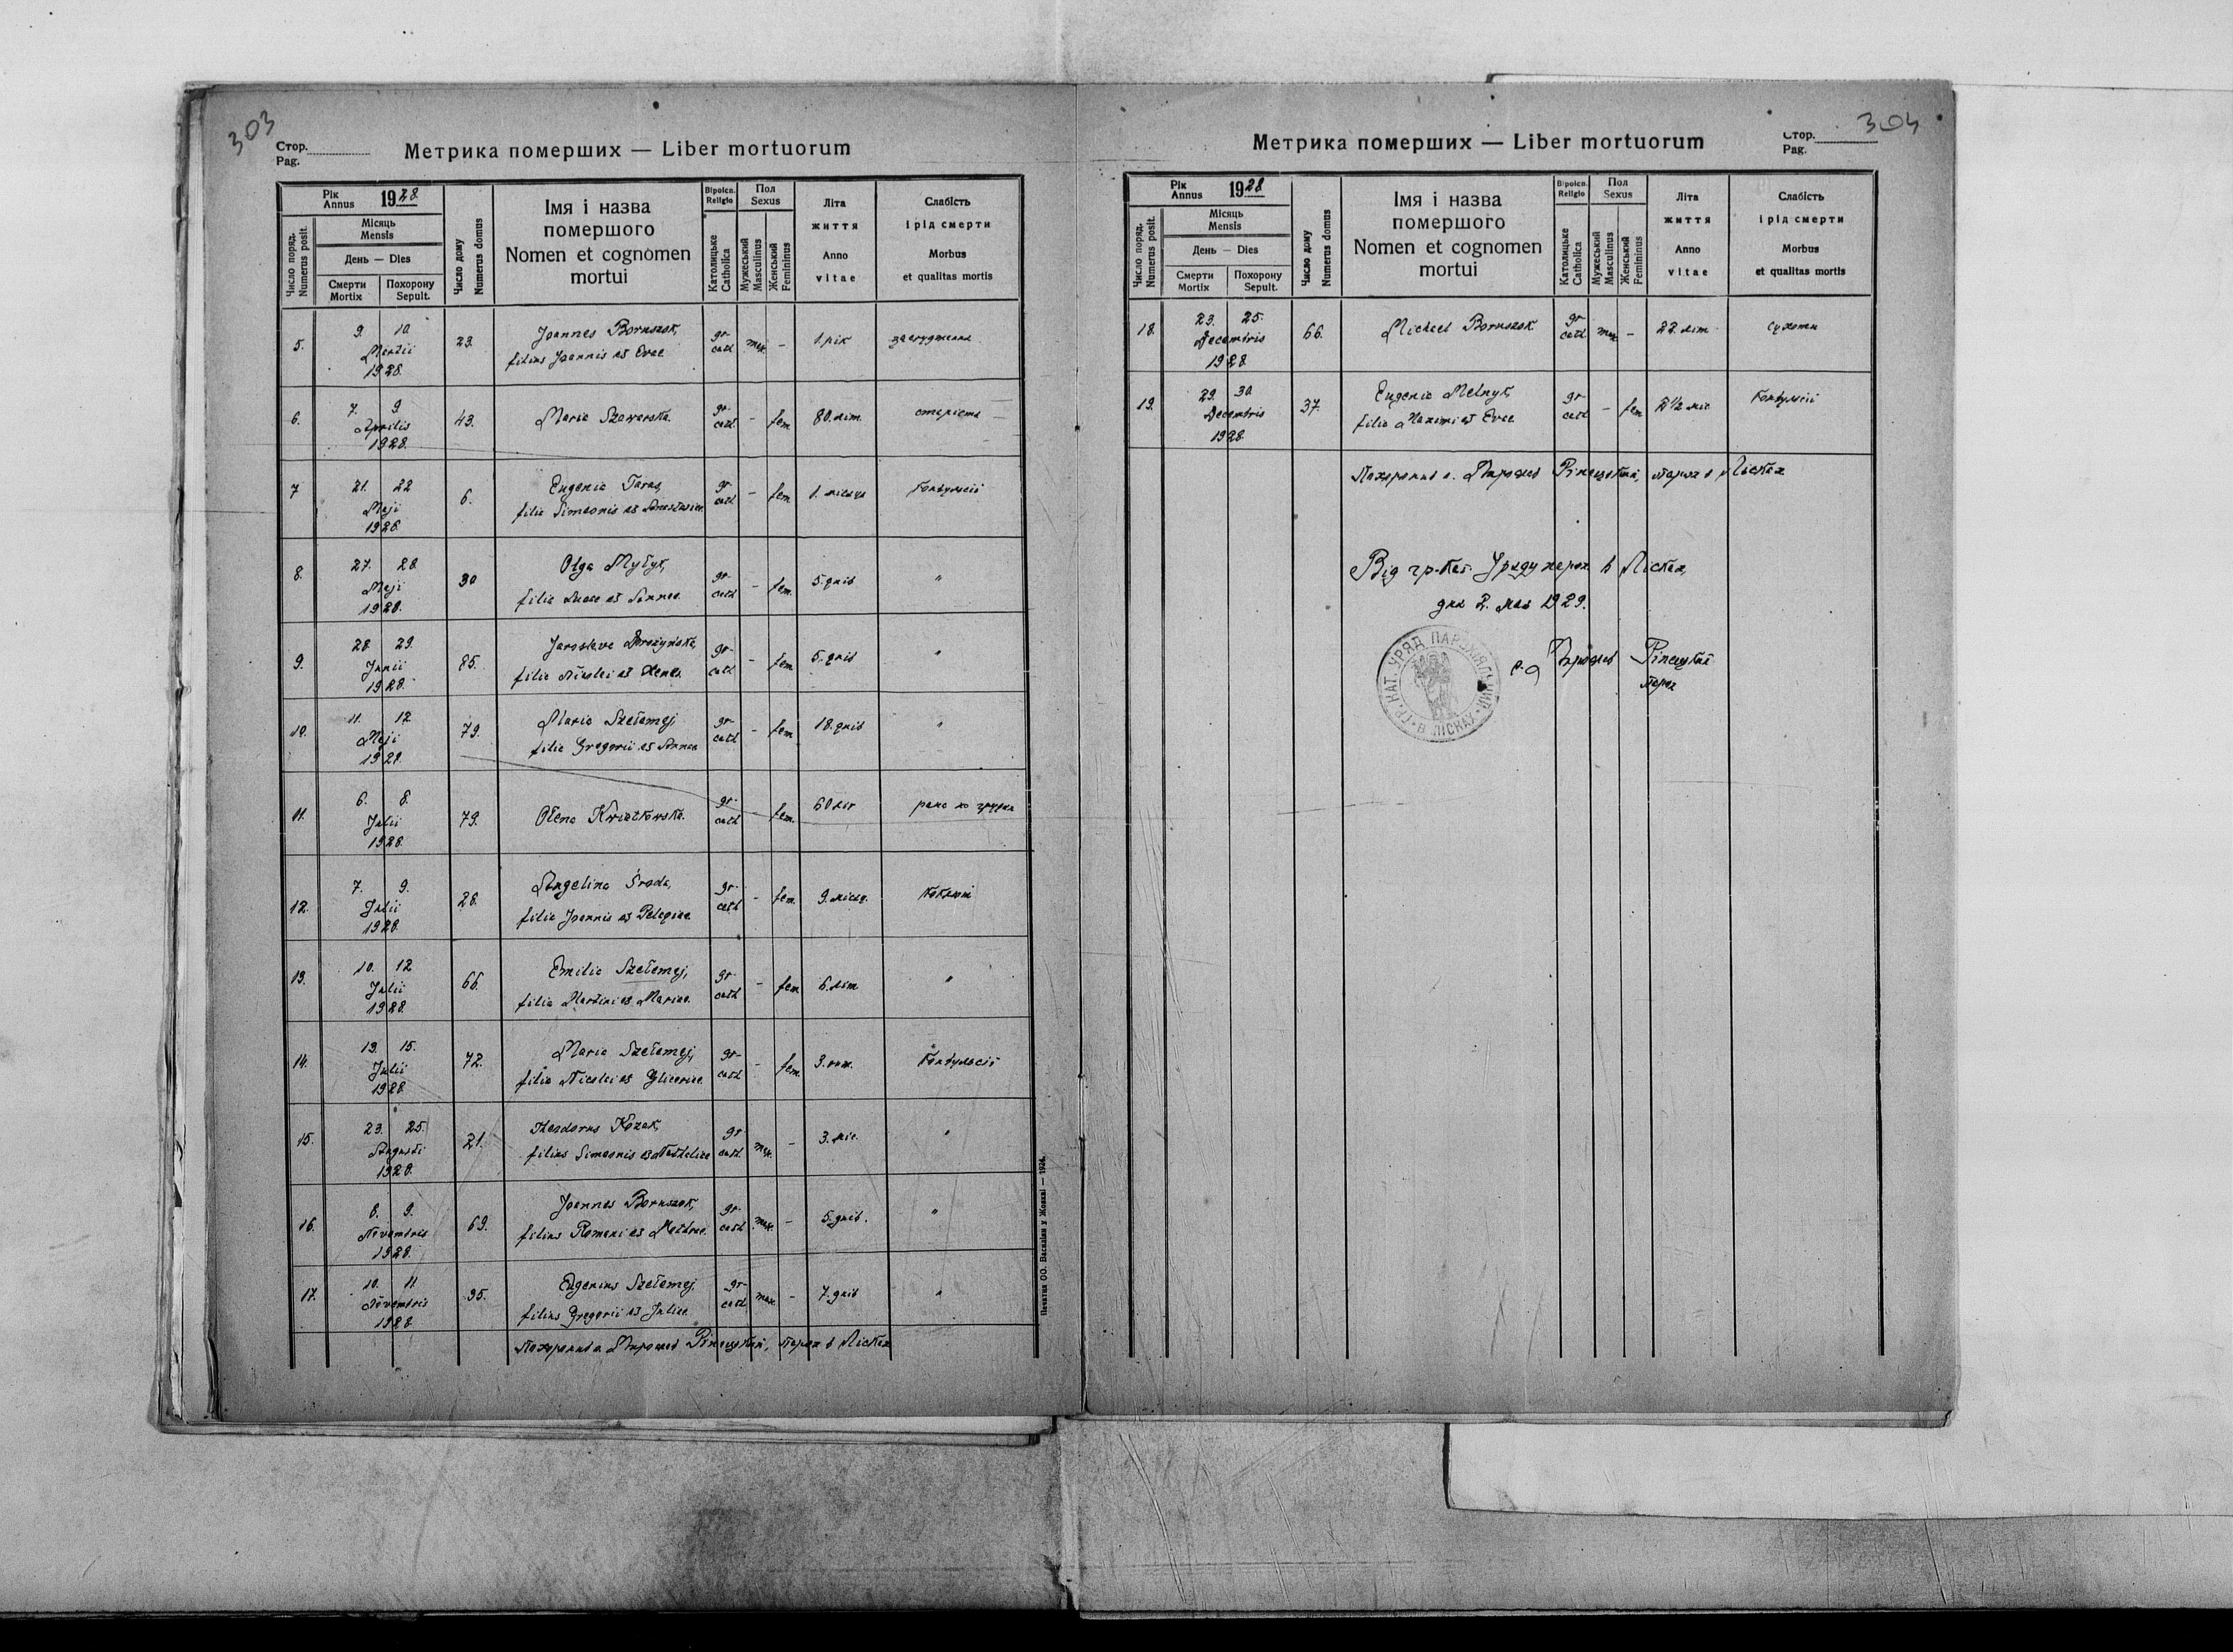 303
Стор.
Pag.
Метрика померших — Liber mortuorum
Рік
Annus
1928.
Місяць
Mensis
День — Dies
Число поряд.
Numerus posit.
Смерти
Mortix
Похорону
Sepult.
Число дому
Numerus domus
Імя і назва
помершого
Nomen et cognomen
mortui
Віроісп.
Religio
Католицьке
Catholica
Пол
Sexus
Мужеський
Masculinus
Женський
Femininus
Літа
життя
Anno
vitae
Слабість
і рід смерти
Morbus
et qualitas mortis
5. 9. 10. Martii 1928. 23. Joannes Boruszok, gr- cath mas. - 1. рік
filius Joannis et Evae
6. 7. 9. Aprilis 1928. 43. Maria gr- cath - fem. 80. літ. старість
7 21. 22 Maji 1928. 6. Eugenia Taras, gr- cath. - fem. 1. місяць конвульсії
filia Simeonis et Anastasiae
8. 27. 28. Maji 1928. 30 Olga gr- cath - fem. 5. днів "
filia Lucae et Annae.
9. 28. 29. Junii 1928. 85. Jaroslava gr- cath - fem. 5. днів "
filia Nicolai et
10. 11. 12. Maji 1928. 79. Maria Szełemej, gr- cath - fem. 18. днів "
filia Gregorii et Annae
11. 6. 8. Julii 1928. 79. Ołena Kwiatkowska. gr- cath - fem. 60 літ
12. 7. 9. Julii 1928. 28. Angelina Sroda, gr- cath - fem. 9. місяц. коклюш
filia Joannis et Pelagiae.
13. 10. 12. Julii 1928. 66. Emilia Szełemej, gr- cath - fem. 6. літ "
filia Martini et Mariae.
14. 13. 15. Julii 1928. 72. Maria Szełemej, gr- cath - fem. 3. конвульсії
filia Nicolai et Gliceriae.
15. 23. 25. Augusti 1928. 21. Theodorus Kozak, gr cath. mas. - 3. міс. "
filius Simeonis et Nathaliae
16. 8. 9. Novembris 1928. 69. Joannes Boruszok, gr- cath mas. - 5. днів. "
filius Romani et
17. 10. 11. Novembris 1928 95. Eugenius Szełemej, gr- cath mas. - 7. днів "
filius Gregorii et Juliae.
Похоронив о. парох в Лісках
Печатня ОО. Василіян у Жовкві — 1926.
304
Стор.
Pag.
Метрика померших — Liber mortuorum
Рік
Annus
1928
Місяць
Mensis
День — Dies
Число поряд.
Numerus posit.
Смерти
Mortix
Похорону
Sepult.
Число дому
Numerus domus
Імя і назва
помершого
Nomen et cognomen
mortui
Віроісп.
Religio
Католицьке
Catholica
Пол
Sexus
Мужеський
Masculinus
Женський
Femininus
Літа
життя
Anno
vitae
Слабість
і рід смерти
Morbus
et qualitas mortis
18. 23. 25. Decembris 1928. 66. Michael Boruszok gr cath mas. - 22. літ сухоти
19. 29. 30. Decembris 1928. 37. Eugenia Melnyk, gr- cath - fem 2 1/2 міс конвульсії
filia Maximi et Evae
Похоронив о. парох в Лісках
Від гр.-кат. Уряду парох. в Лісках,
дня 2. мая 1929.
ГР. КАТ. УРЯД ПАРОХІЯЛЬНИЙ В ЛІСКАХ
парох